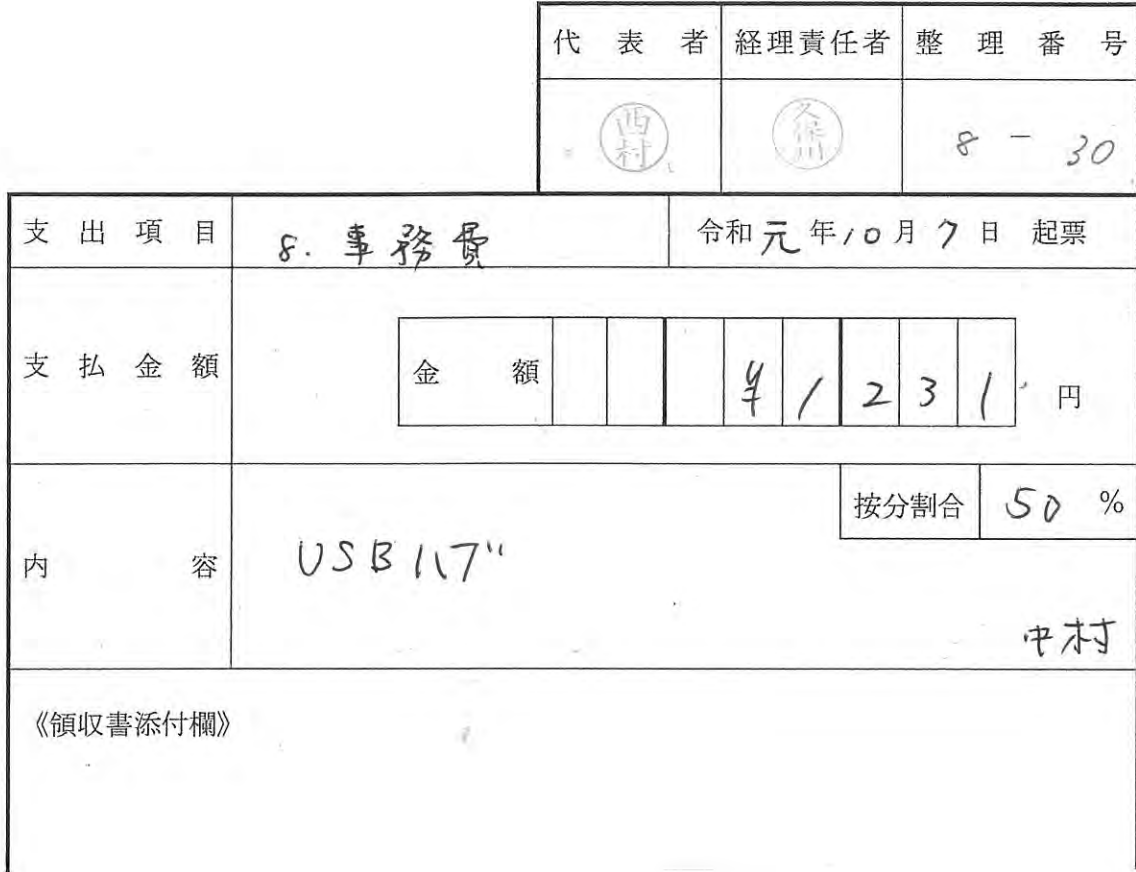 代表者 経理責任者 整理番号
西村 久保川 8-30
支出項目 8. 事務費 令和元年10月7日 起票
支払金額 金額 ¥1231 円
按分割合 50 %
内容 USBハブ
中村
《領収書添付欄》